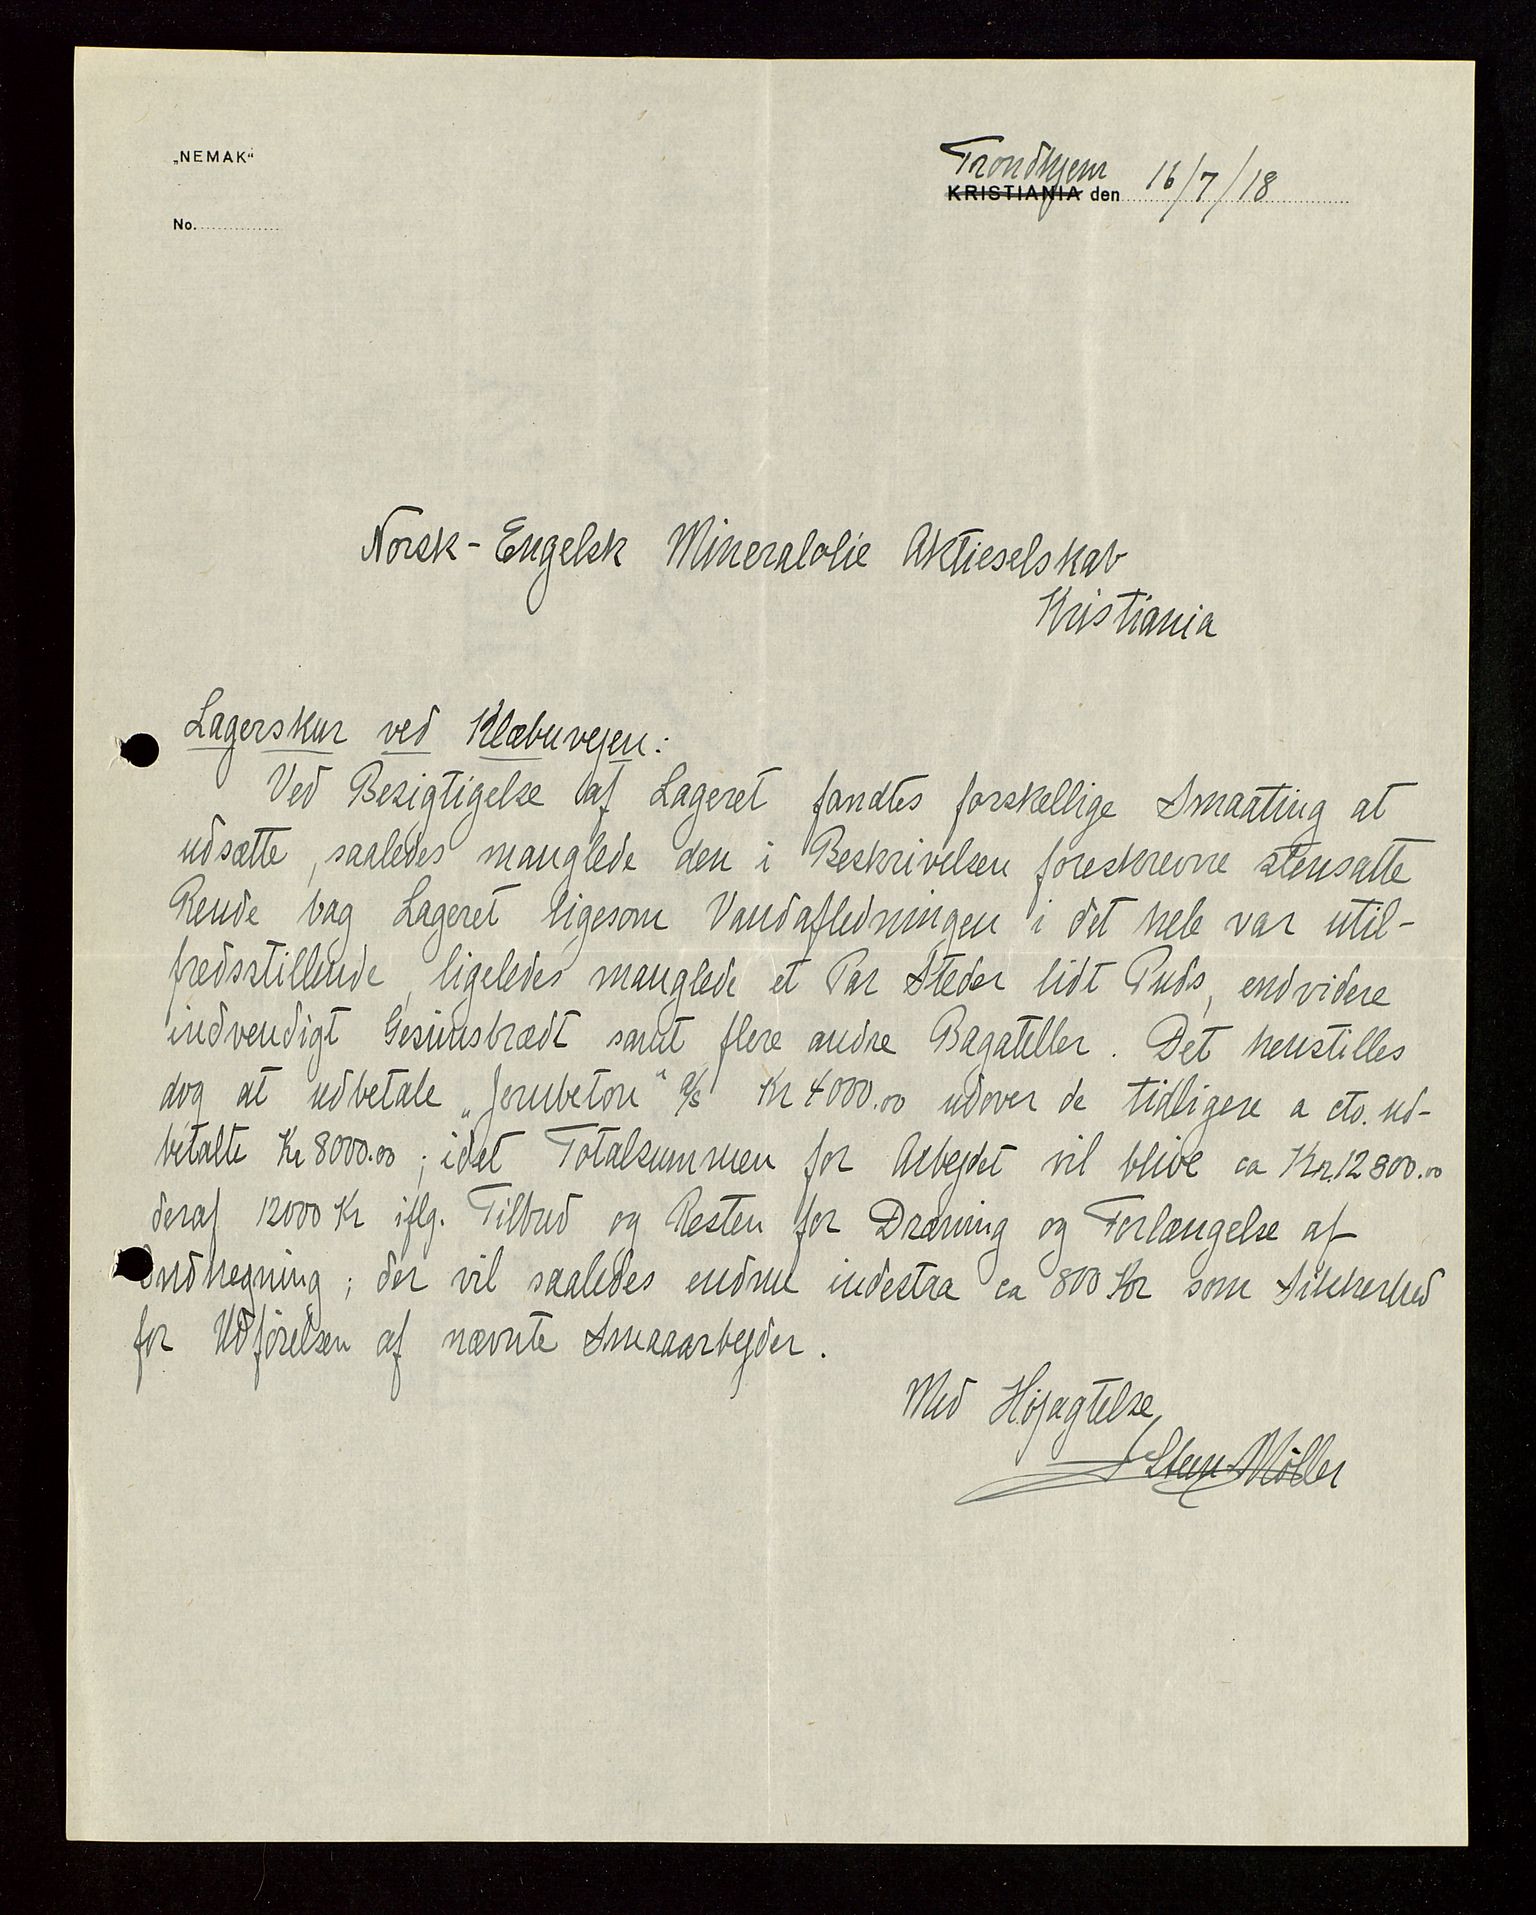 „NEMAK“
Trondhjem
KRISTIANIA den 16/7/18
No.
Norsk-Engelsk Mineralolie Aktieselskab
Kristiania
Lagerskur ved Klæbuvejen:
Ved Besigtigelse af Lageret fandtes forskellige Smaating at
udsætte, saaledes manglede den i Beskrivelsen foreskrevne stensatte
Rende bag Lageret ligesom Vandafledningen i det hele var util-
fredsstillende, ligeledes manglede et Par Steder lidt Puds, endvidere
indvendigt Gesimsbrædt samt flere andre Bagateller. Det henstilles
dog at udbetale „Jernbeton“ A/S Kr 4000.00 udover de tidligere a cto. ud-
betalte Kr 8000.00; idet Totalsummen for Arbejdet vil blive ca Kr. 12800.00
deraf 12000 Kr iflg. Tilbud og Resten for Dræning og Forlængelse af
Indhegning; der vil saaledes endnu indestaa ca 800 Kr som Sikkerhed
for Udførelsen af nævnte Smaaarbejder.
Med Højagtelse
Steen Møller